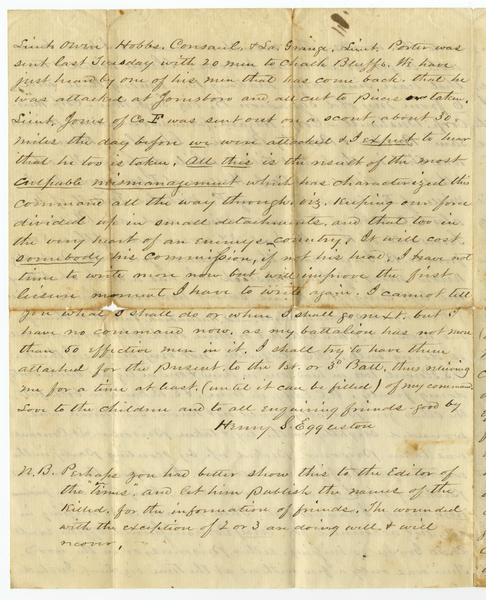 Lieut Owen Hobbs. Consaul, & La. Grange. Lieut. Porter was
sent last Tuesday with 20 men to Chalk Bluffs. We have
just heard by one of his men that has come back that he
was attacked at Jonesboro and all cut to pieces or taken.
Lieut, Jones of Co F was sent out on a scout, about 30
miles the day before we were attacked & I expect to hear
that he too is taken. All this is the result of the most
culpable mismanagement which has characterized this
command all the way through. viz. Keeping our force
divided up in small detachments, and that too in
the very heart of an enemys country. It will cost
somebody his commission, if not his head. I have not
time to write more now but will improve the first
leisure moment I have to write again. I cannot tell
you what I shall do or when I shall go next. but I
have no command now, as my battalion has not more
than 50 effective men in it. I shall try to have them
attached for the present to the 1st. or 3d Batt. thus relieving
me for a time at least, (until it can be filled) of my command
Love to the children and to all enquiring friends good by
Henry S. Eggleston
N.B. Perhaps you had better show this to the Editor of
the "Times", and let him publish the names of the
Killed, for the information of friends. The wounded
with the exception of 2 or 3 are doing well & will
recover,